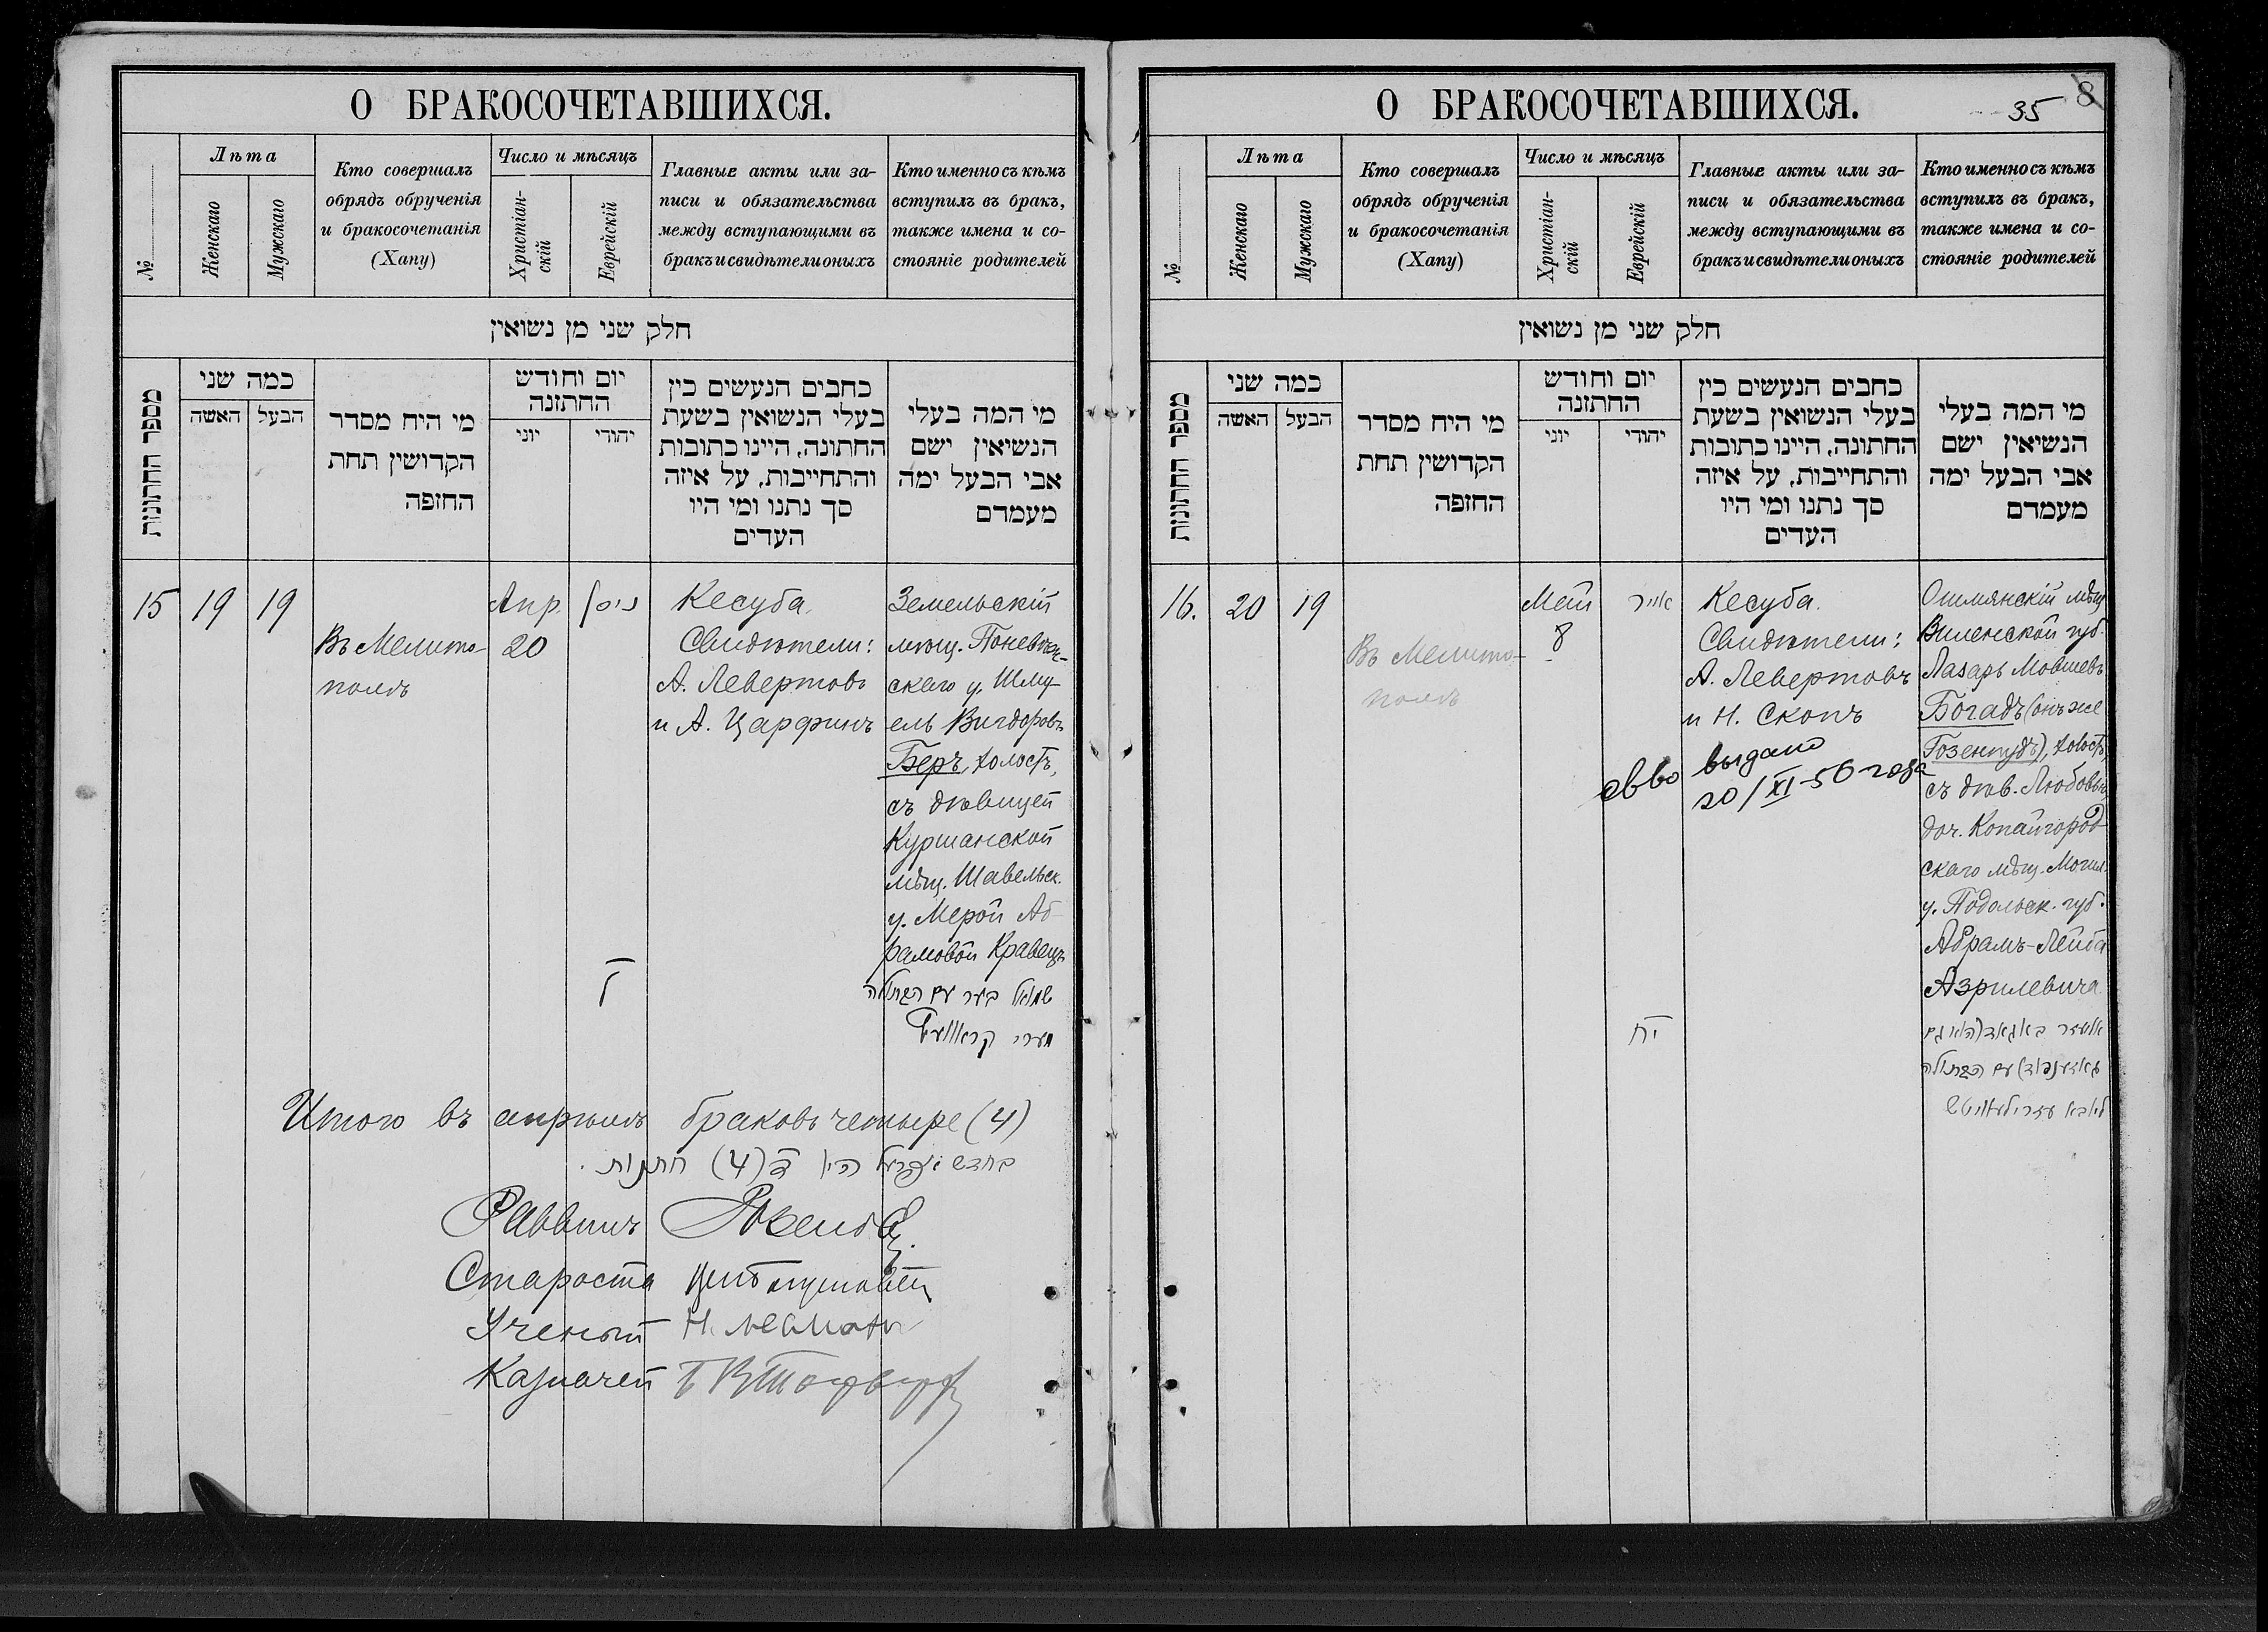 О БРАКОСОЧЕТАВШИХСЯ.
№
Лѣта
Женскаго
Мужскаго
Кто совершалъ
обрядъ обрученія
и бракосочетанія
(Хапу)
Число и мѣсяцъ
Христіан-
скій
Еврейскій
Главные акты или за-
писи и обязательства
между вступающими въ
бракъ и свидѣтели оныхъ
Кто именно съ кѣмъ
вступилъ въ бракъ,
также имена и со-
стояніе родителей
חלק שני מן נשואין
מספר החתונות
כמה שני
האשה
הבעל
מי היח מסדר
הקדושין תחת
החופה
יום וחודש
החתונה
יוני
יהודי
כתבים הנעשים בין
בעלי הנשואין בשעת
החתונה, היינו כתובות
והתחייבות, על איזה
סך נתנו ומי היו
העדים
מי המה בעלי
הנשיאין ישם
אבי הבעל ימה
מעמדם
15
19
19
Въ Мелито-
полѣ
Апр.
20
ניסן
ל
Кесуба.
Свидѣтели:
А. Левертовъ
и А. Царфинъ
Земельскій
мѣщ. Поневѣж-
скаго у. Шму-
ель Вигдоровъ
Беръ, холостъ,
съ дѣвицей
Куршанской
мѣщ. Шавельск.
у. Мерой Аб-
рамовой Кравецъ
שמואל בער עם הבתולה
מערי קראוועץ
Итого въ апрѣлѣ браковъ четыре (4)
בחדש אפריל היו ד (4) חתנות.
Раввинъ
Староста
Ученый
Казначей
О БРАКОСОЧЕТАВШИХСЯ.
35
8
№
Лѣта
Женскаго
Мужскаго
Кто совершалъ
обрядъ обрученія
и бракосочетанія
(Хапу)
Число и мѣсяцъ
Христіан-
скій
Еврейскій
Главные акты или за-
писи и обязательства
между вступающими въ
бракъ и свидѣтели оныхъ
Кто именно съ кѣмъ
вступилъ въ бракъ,
также имена и со-
стояніе родителей
חלק שני מן נשואין
מספר החתונות
כמה שני
האשה
הבעל
מי היח מסדר
הקדושין תחת
החופה
יום וחודש
החתונה
יוני
יהודי
כתבים הנעשים בין
בעלי הנשואין בשעת
החתונה, היינו כתובות
והתחייבות, על איזה
סך נתנו ומי היו
העדים
מי המה בעלי
הנשיאין ישם
אבי הבעל ימה
מעמדם
16.
20
19
Въ Мелито-
полѣ
Май
8
אייר
יח
Кесуба.
Свидѣтели:
А. Левертовъ
и Н. Скопъ
выдано
20/XI-56 года
Ошмянскій мѣщ.
Виленской губ.
Лазарь Мовшевъ
Богадъ (онъ же
Гозенпудъ), холостъ,
съ дѣв. Любовью,
доч. Копайгород-
скаго мѣщ. Могил.
у. Подольск. губ.
Абрамъ-Лейба
Азрилевича
אליעזר באגאד (הוא גם
גאזענפוד) עם הבתולה
ליבא עזרילעוויטש